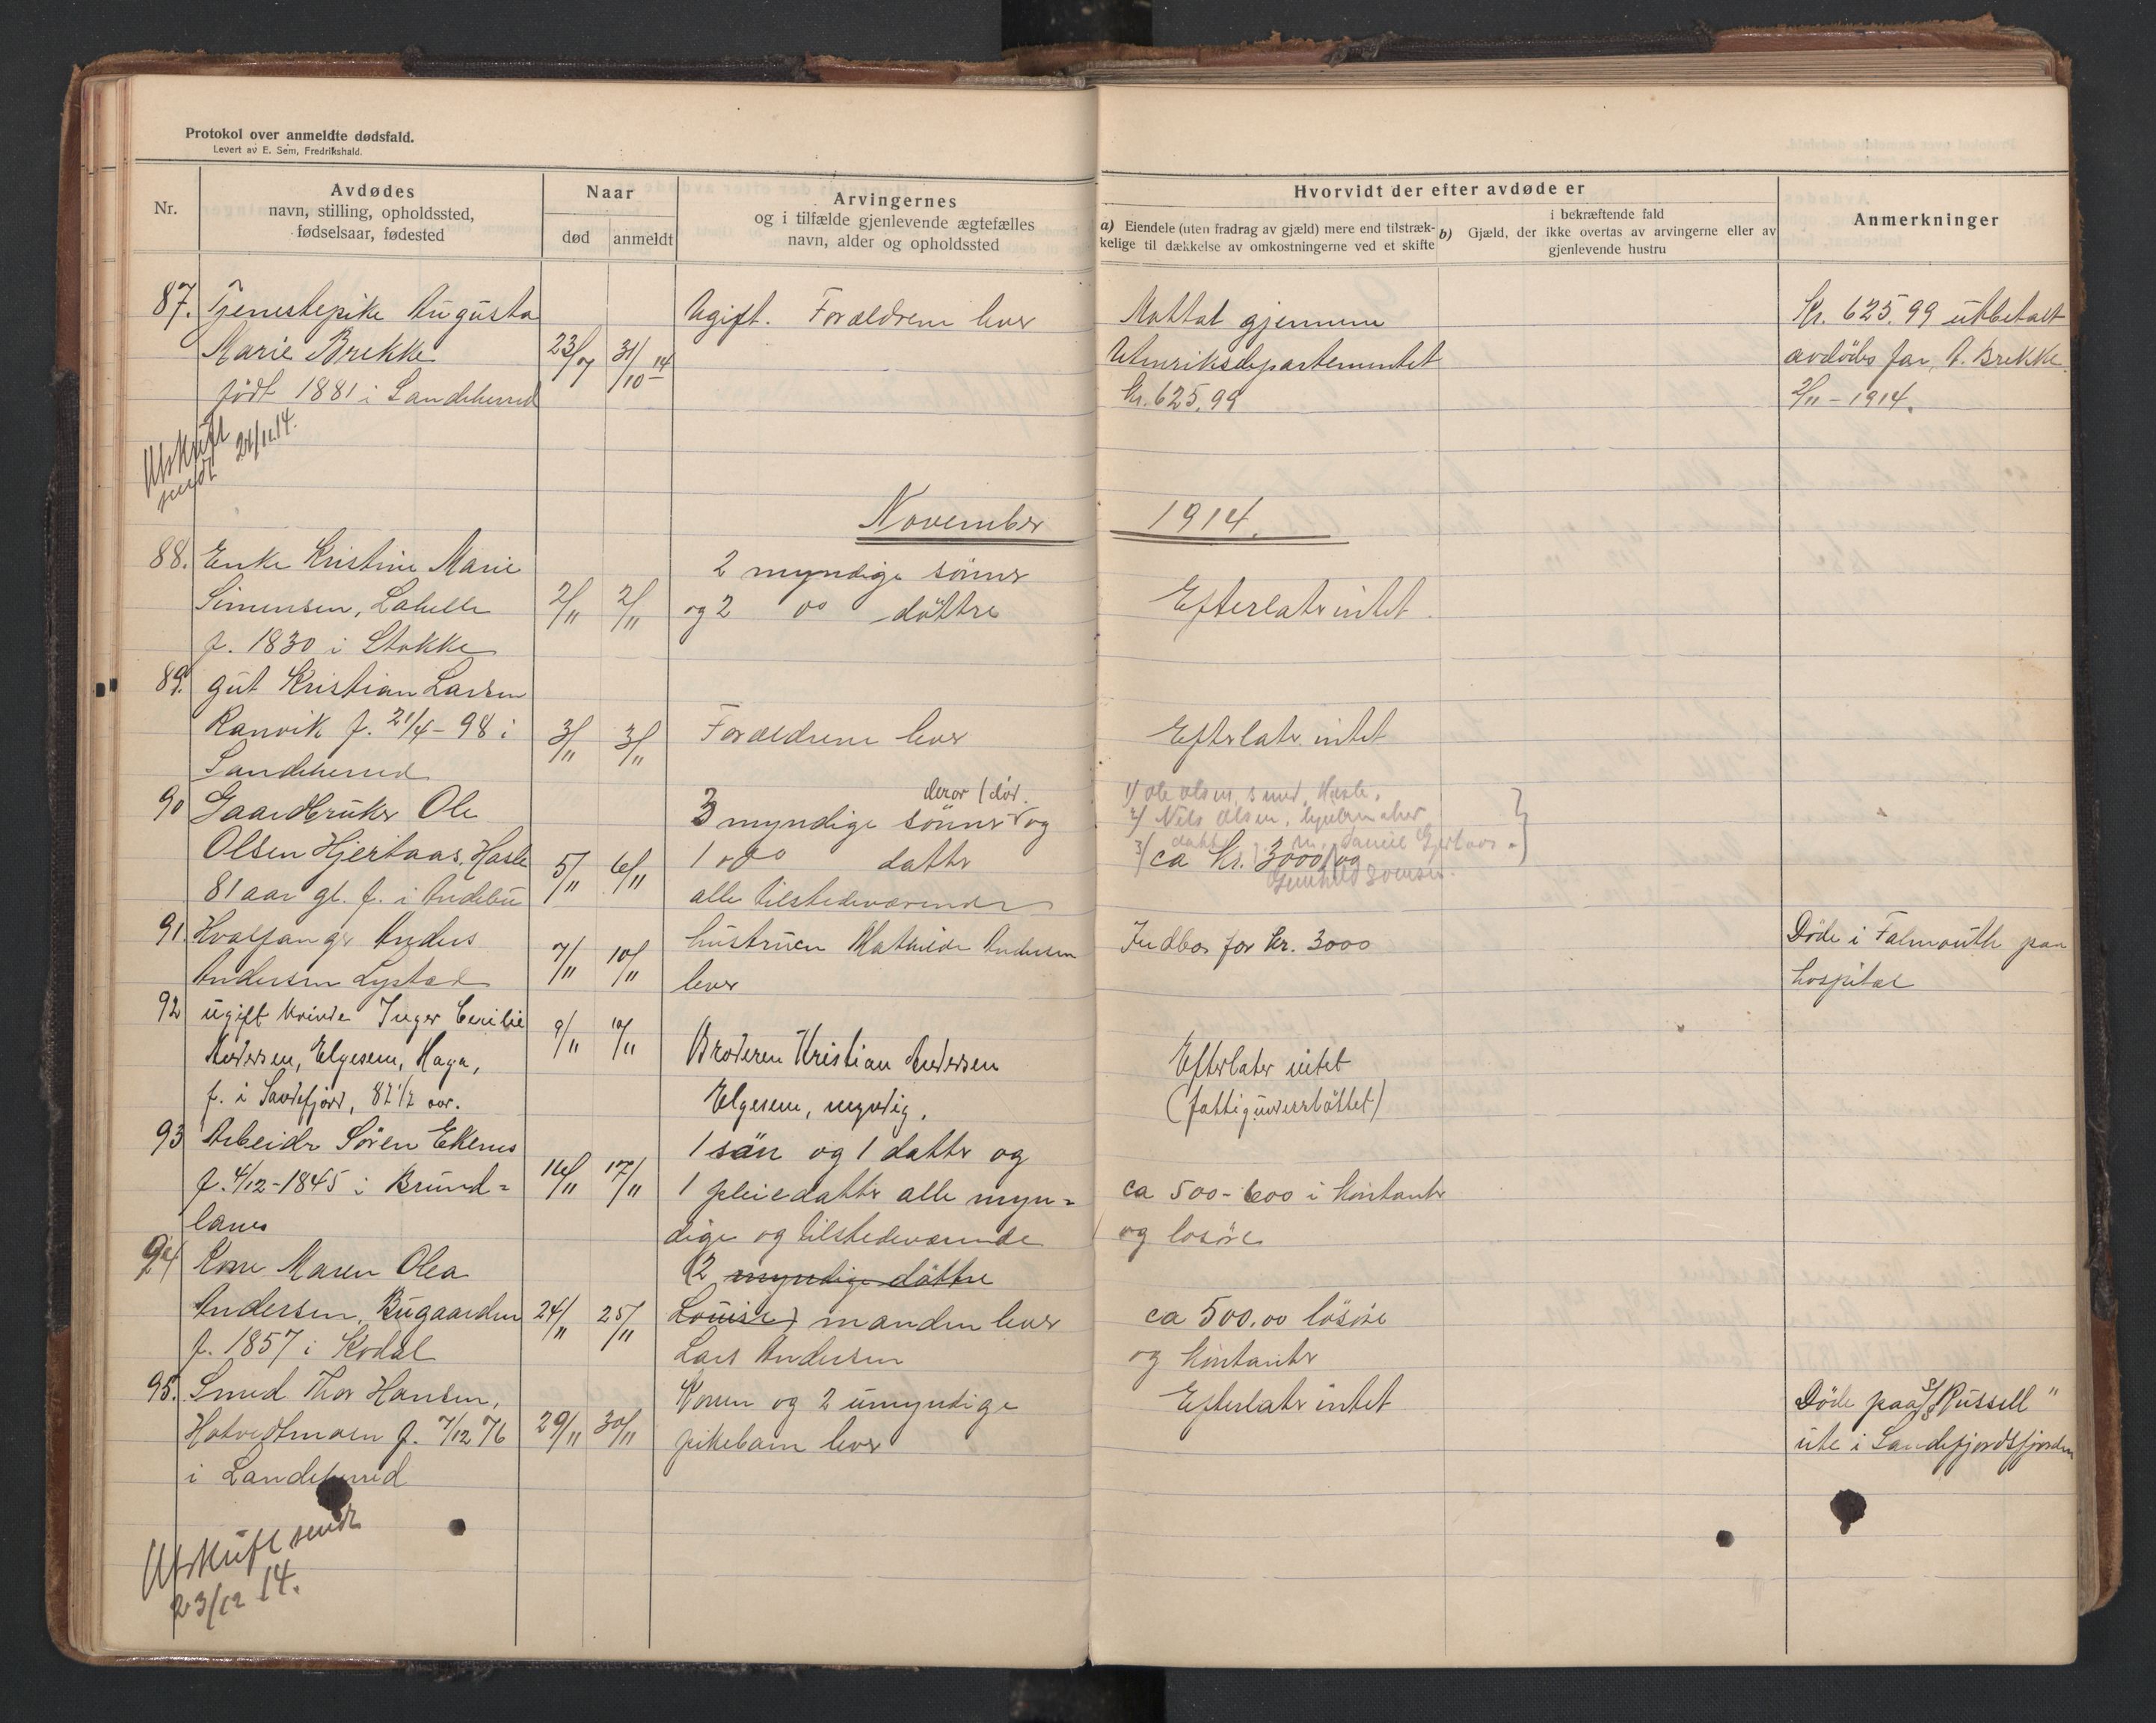 Protokol over anmeldte dødsfald.
Levert av E. Sem, Fredrikshald.
Nr.
Avdødes
navn, stilling, opholdssted,
fødselsaar, fødested
Naar
død
anmeldt
Arvingernes
og i tilfælde gjenlevende ægtefælles
navn, alder og opholdssted
Hvorvidt der efter avdøde er
a) Eiendele (uten fradrag av gjæld) mere end tilstræk-
kelige til dækkelse av omkostningerne ved et skifte
b) i bekræftende fald
Gjæld, der ikke overtas av arvingerne eller av
gjenlevende hustru
Anmerkninger
87. Tjenestepike Augusta
Marie Brekke
født 1881 i Sandeherred
23/7
31/10 14
Ugift. Forældrene lever
Mottat gjennem
Utenriksdepartementet
kr. 625.99
Kr. 625.99 utbetalt
avdødes far, A. Brekke
2/11 - 1914.
Utskrift
sendt 21/11 14.
November 1914.
88. Enke Kristine Marie
Simensen, Labelle
f. 1830 i Stokke
2/11
2/11
2 myndige sönner
og 2 do döttre
Efterlater intet
89. gut Kristian Larsen
Ranvik f. 21/4 - 98 i
Sandeherred
3/11
3/11
Forældrene lever
Efterlater intet
90 Gaardbruker Ole
Olsen Hjertaas, Hasle
81 aar gl. f. i Andebu
5/11
6/11
derav 1 död.
3 myndige sönner og
1 do datter
alle tilstedeværende
1) Ole Olsen, smed, Hasle,
2) Nils Olsen,
3) datter
ca kr. 3000 og
91. Hvalfanger Anders
Andersen Lystad
7/11
10/11
hustruen Mathilde Andersen
lever
Indbo for kr. 3000
Döde i Falmouth paa
hospital
92 ugift kvinde Inger Cecilie
Andersen, Elgesem, Haga,
f. i Sandefjord, 82 1/2 aar.
9/11
10/11
Broderen Kristian Andersen
Elgesem, myndig.
Efterlater intet
(fattigunderstöttet)
93 Arbeider Sören Ekenes
f. 4/12 - 1845 i Brund=
lanes
16/11
17/11
1 sön og 1 datter og
1 pleiedatter alle myn=
dige og tilstedeværende
ca 500-600 i kontanter
og losöre
94 Kone Maren Olea
Andersen, Bugaarden
f. 1857 i Kodal
24/11
25/11
(2 myndige döttre
Louise) manden lever
Lars Andersen
ca 500.00 lösöre
og kontanter
95. Smed Thor Hansen,
Hotvedtmoen f. 7/12 76
i Sandeherred
29/11
30/11
Konen og 2 umyndige
pikebarn lever
Efterlater intet
Döde paa S/S "Russell"
ute i Sandefjordsfjorden
Utskrift sendt
23/12 14.